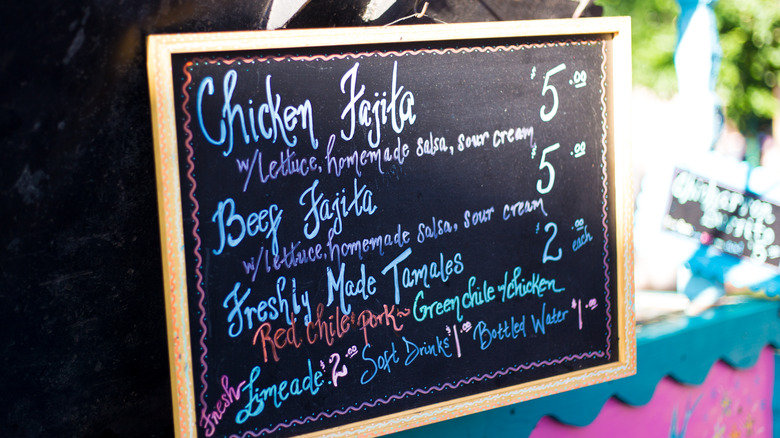 Chicken Fajita $5.00
w/Lettuce, homemade salsa, sour cream
Beef Fajita $5.00
w/lettuce, homemade salsa, sour cream
Freshly Made Tamales $2.00 each
Red chile & pork ~ Green chile w/chicken
Fresh Limeade $2.00 Soft Drinks $1.00 Bottled Water $1.00